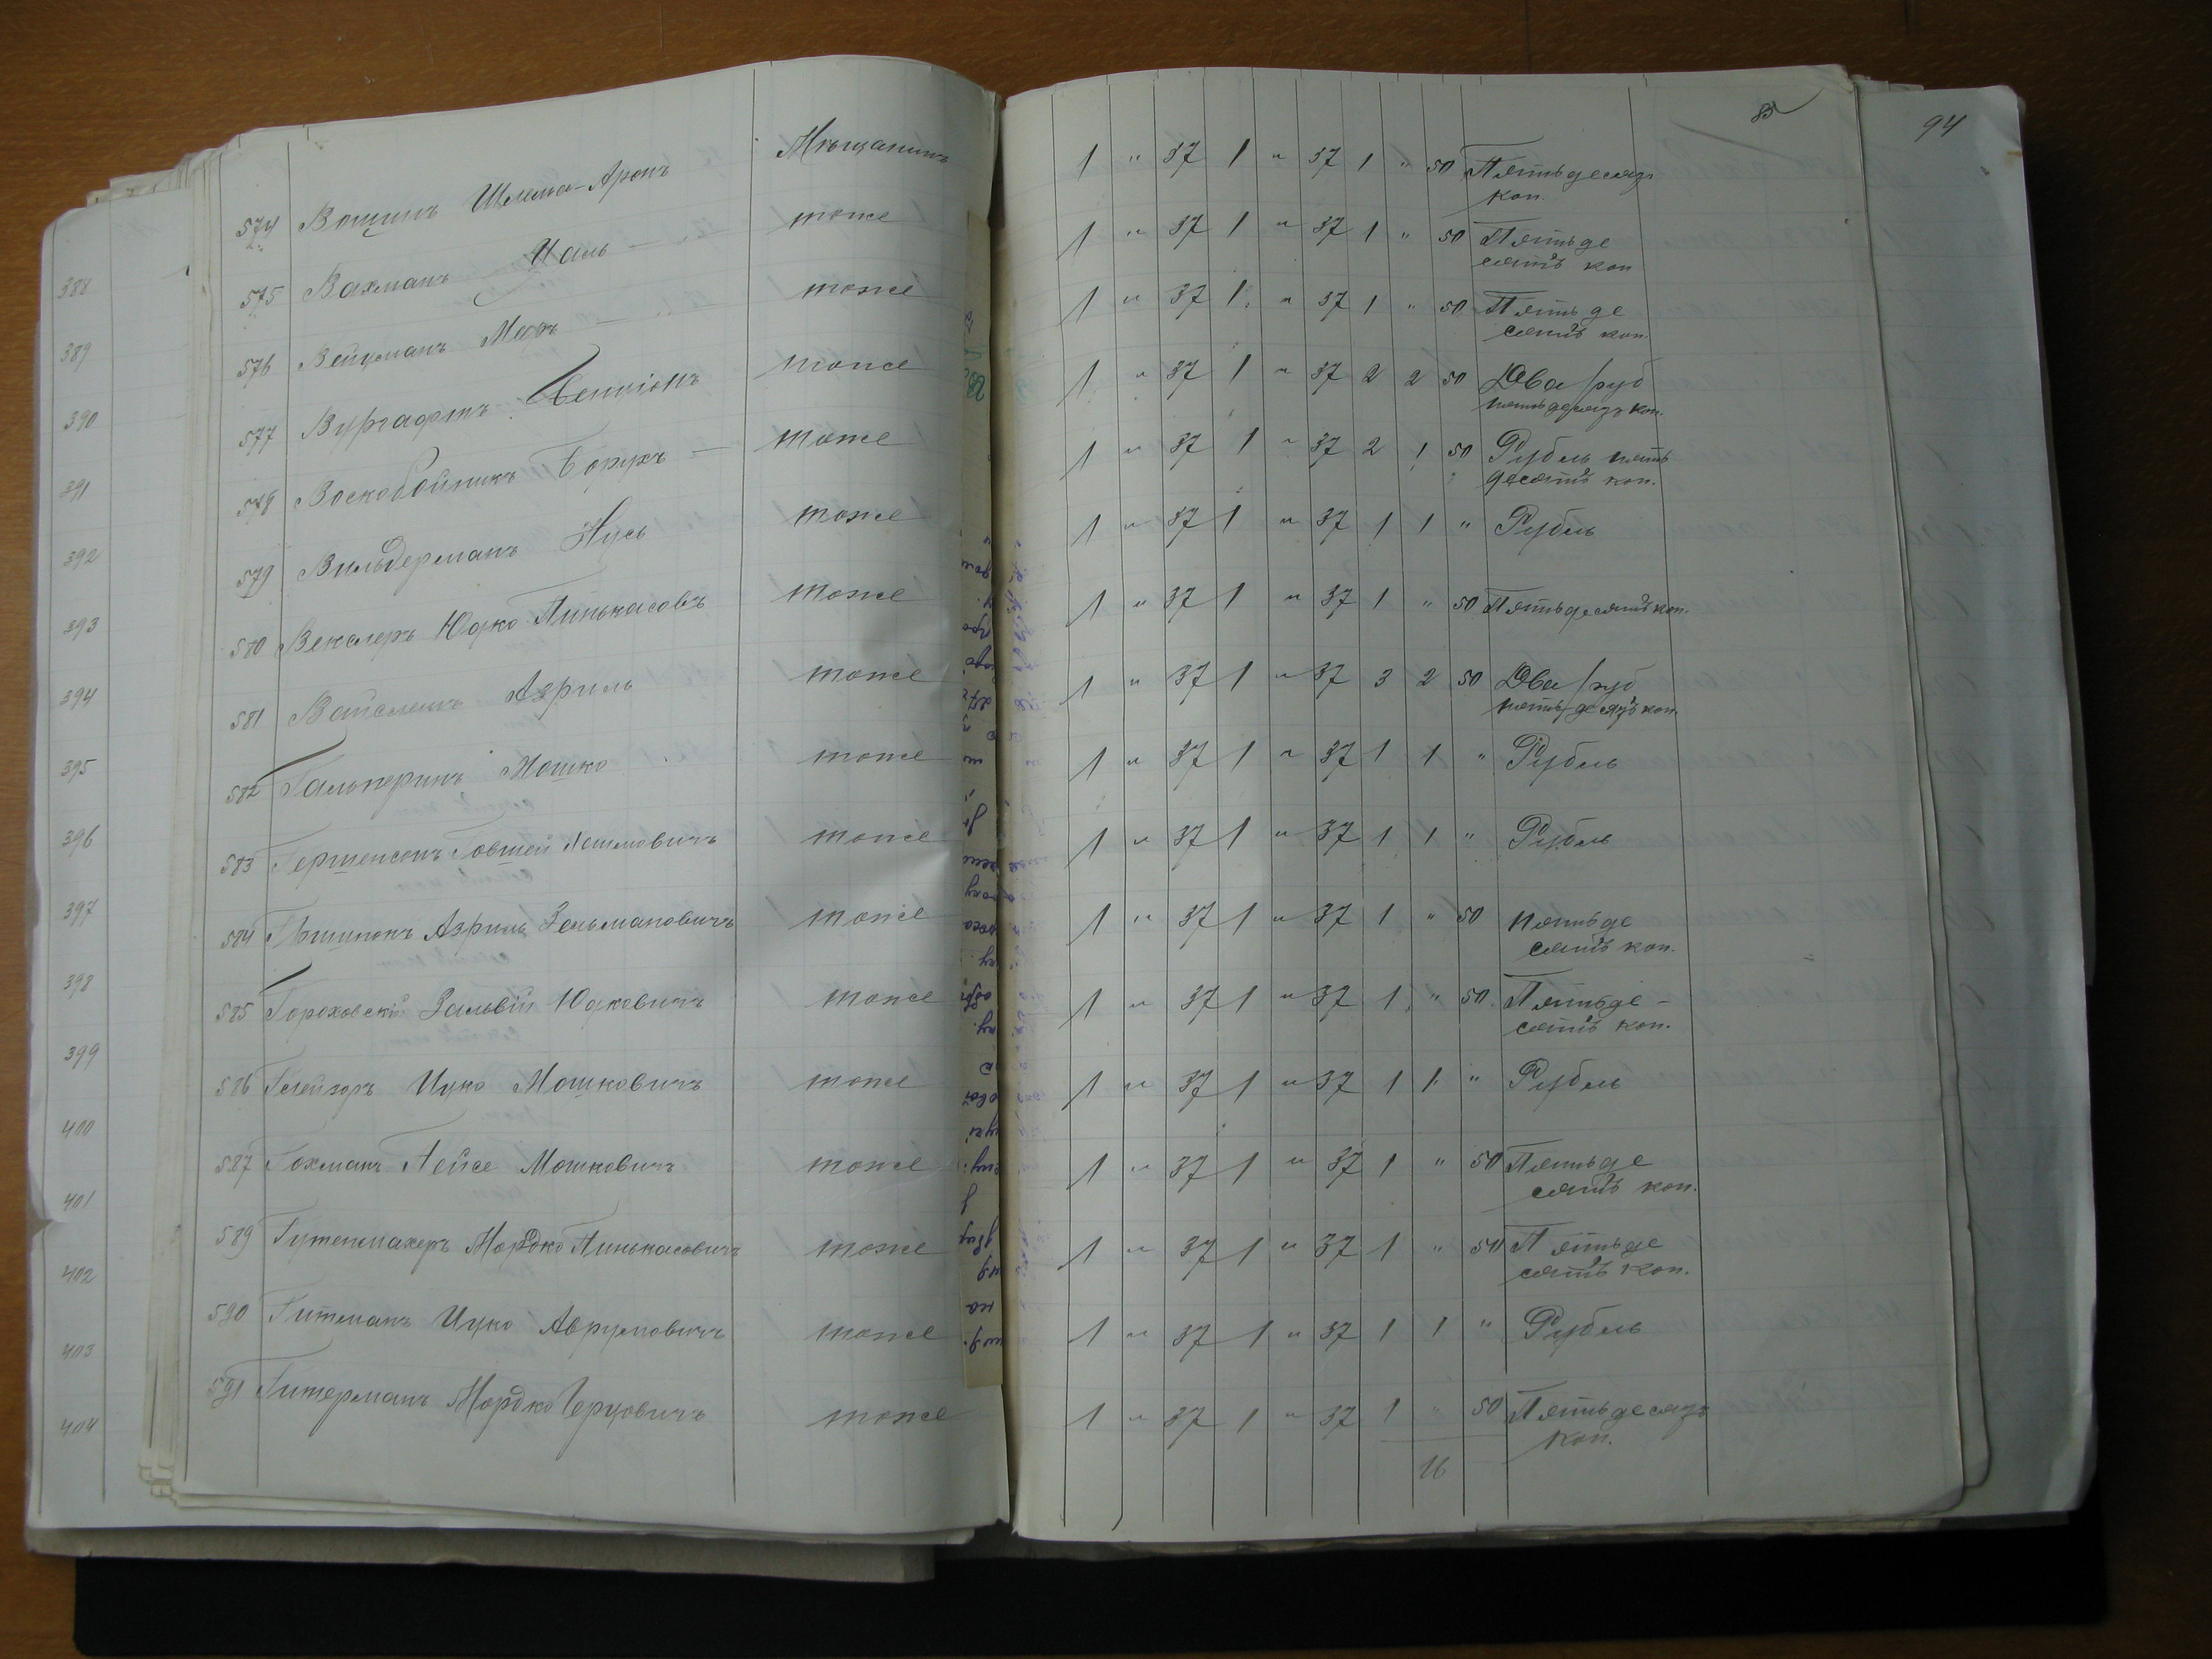 85
94
574 Вощинъ Шлема-Аронъ Мѣщанинъ 1 " 37 1 " 37 1 " 50 Пятьдесятъ
коп.
575 Вахманъ тоже 1 " 37 1 " 37 1 " 50 Пятьде
сятъ коп
576 Вейцманъ тоже 1 " 37 1 " 37 1 " 50 Пятьде
сятъ коп.
577 Вургафтъ Бенціонъ тоже 1 " 37 1 " 37 2 2 50 Два руб
пятьдесятъ коп.
578 Воскобойникъ Борухъ — тоже 1 " 37 1 " 37 2 1 50 Рубль пять
десятъ коп.
579 Вильдерманъ Нусь тоже 1 " 37 1 " 37 1 1 " Рубль
580 Векслеръ Юдко Пинькасовъ тоже 1 " 37 1 " 37 1 " 50 Пятьдесятъ коп.
581 Азриль тоже 1 " 37 1 " 37 3 2 50 Два руб
пять-десятъ коп.
582 Гальперинъ Мошко тоже 1 " 37 1 " 37 1 1 " Рубль
583 Гершенсонъ Говшей тоже 1 " 37 1 " 37 1 1 " Рубль
584 Азриль Зельмановичъ тоже 1 " 37 1 " 37 1 " 50 Пятьде
сятъ коп.
585 Гороховскій Зальвій Юдковичъ тоже 1 " 37 1 " 37 1 " 50 Пятьде-
сятъ коп.
586 Глейзоръ Ицко Мошковичъ тоже 1 " 37 1 " 37 1 1 " Рубль
587 Гохманъ Лейсе Мошковичъ тоже 1 " 37 1 " 37 1 " 50 Пятьде
сятъ коп.
589 Гутенмахеръ Мордко Пинькасовичъ тоже 1 " 37 1 " 37 1 " 50 Пятьде
сятъ коп.
590 Гитманъ Ицко Аврумовичъ тоже 1 " 37 1 " 37 1 1 " Рубль
591 Гитерманъ Мордко Герцовичъ тоже 1 " 37 1 " 37 1 " 50 Пятьдесятъ
коп.
16
388
389
390
391
392
393
394
395
396
397
398
399
400
401
402
403
404